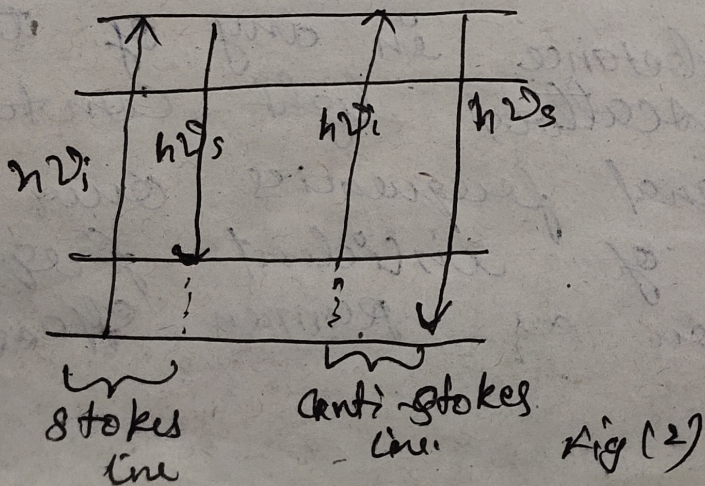 hνi
hνs
hνi
hνs
Stokes
line
anti-stokes
line.
Fig (2)